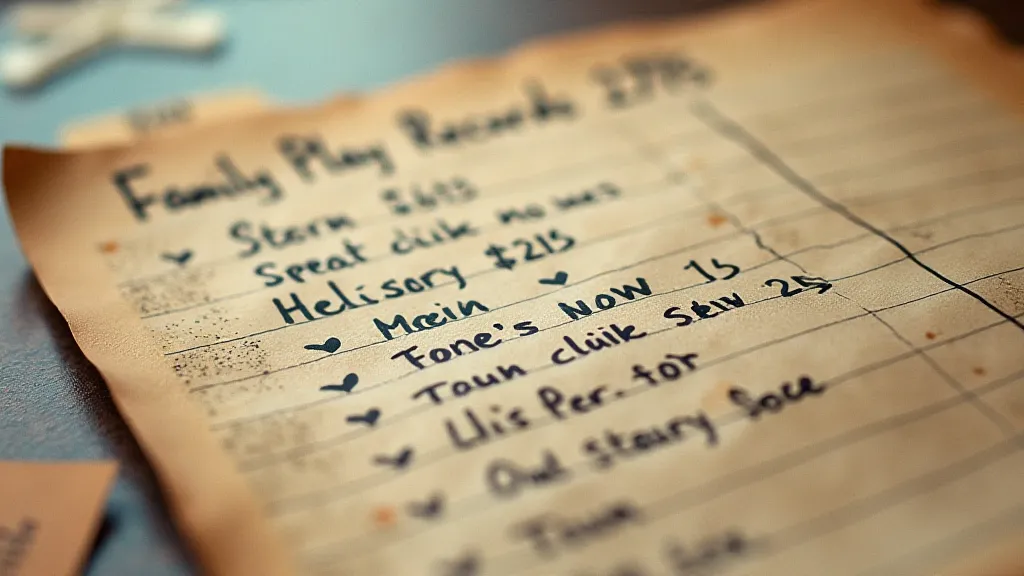 Family Play Records
Storn
Speat cliik no wes
Helisory $215
Mrein
Fone's Now 15
Toun cluik Seiw 25
Uis Per. for
Oul Steury Soce
Toun